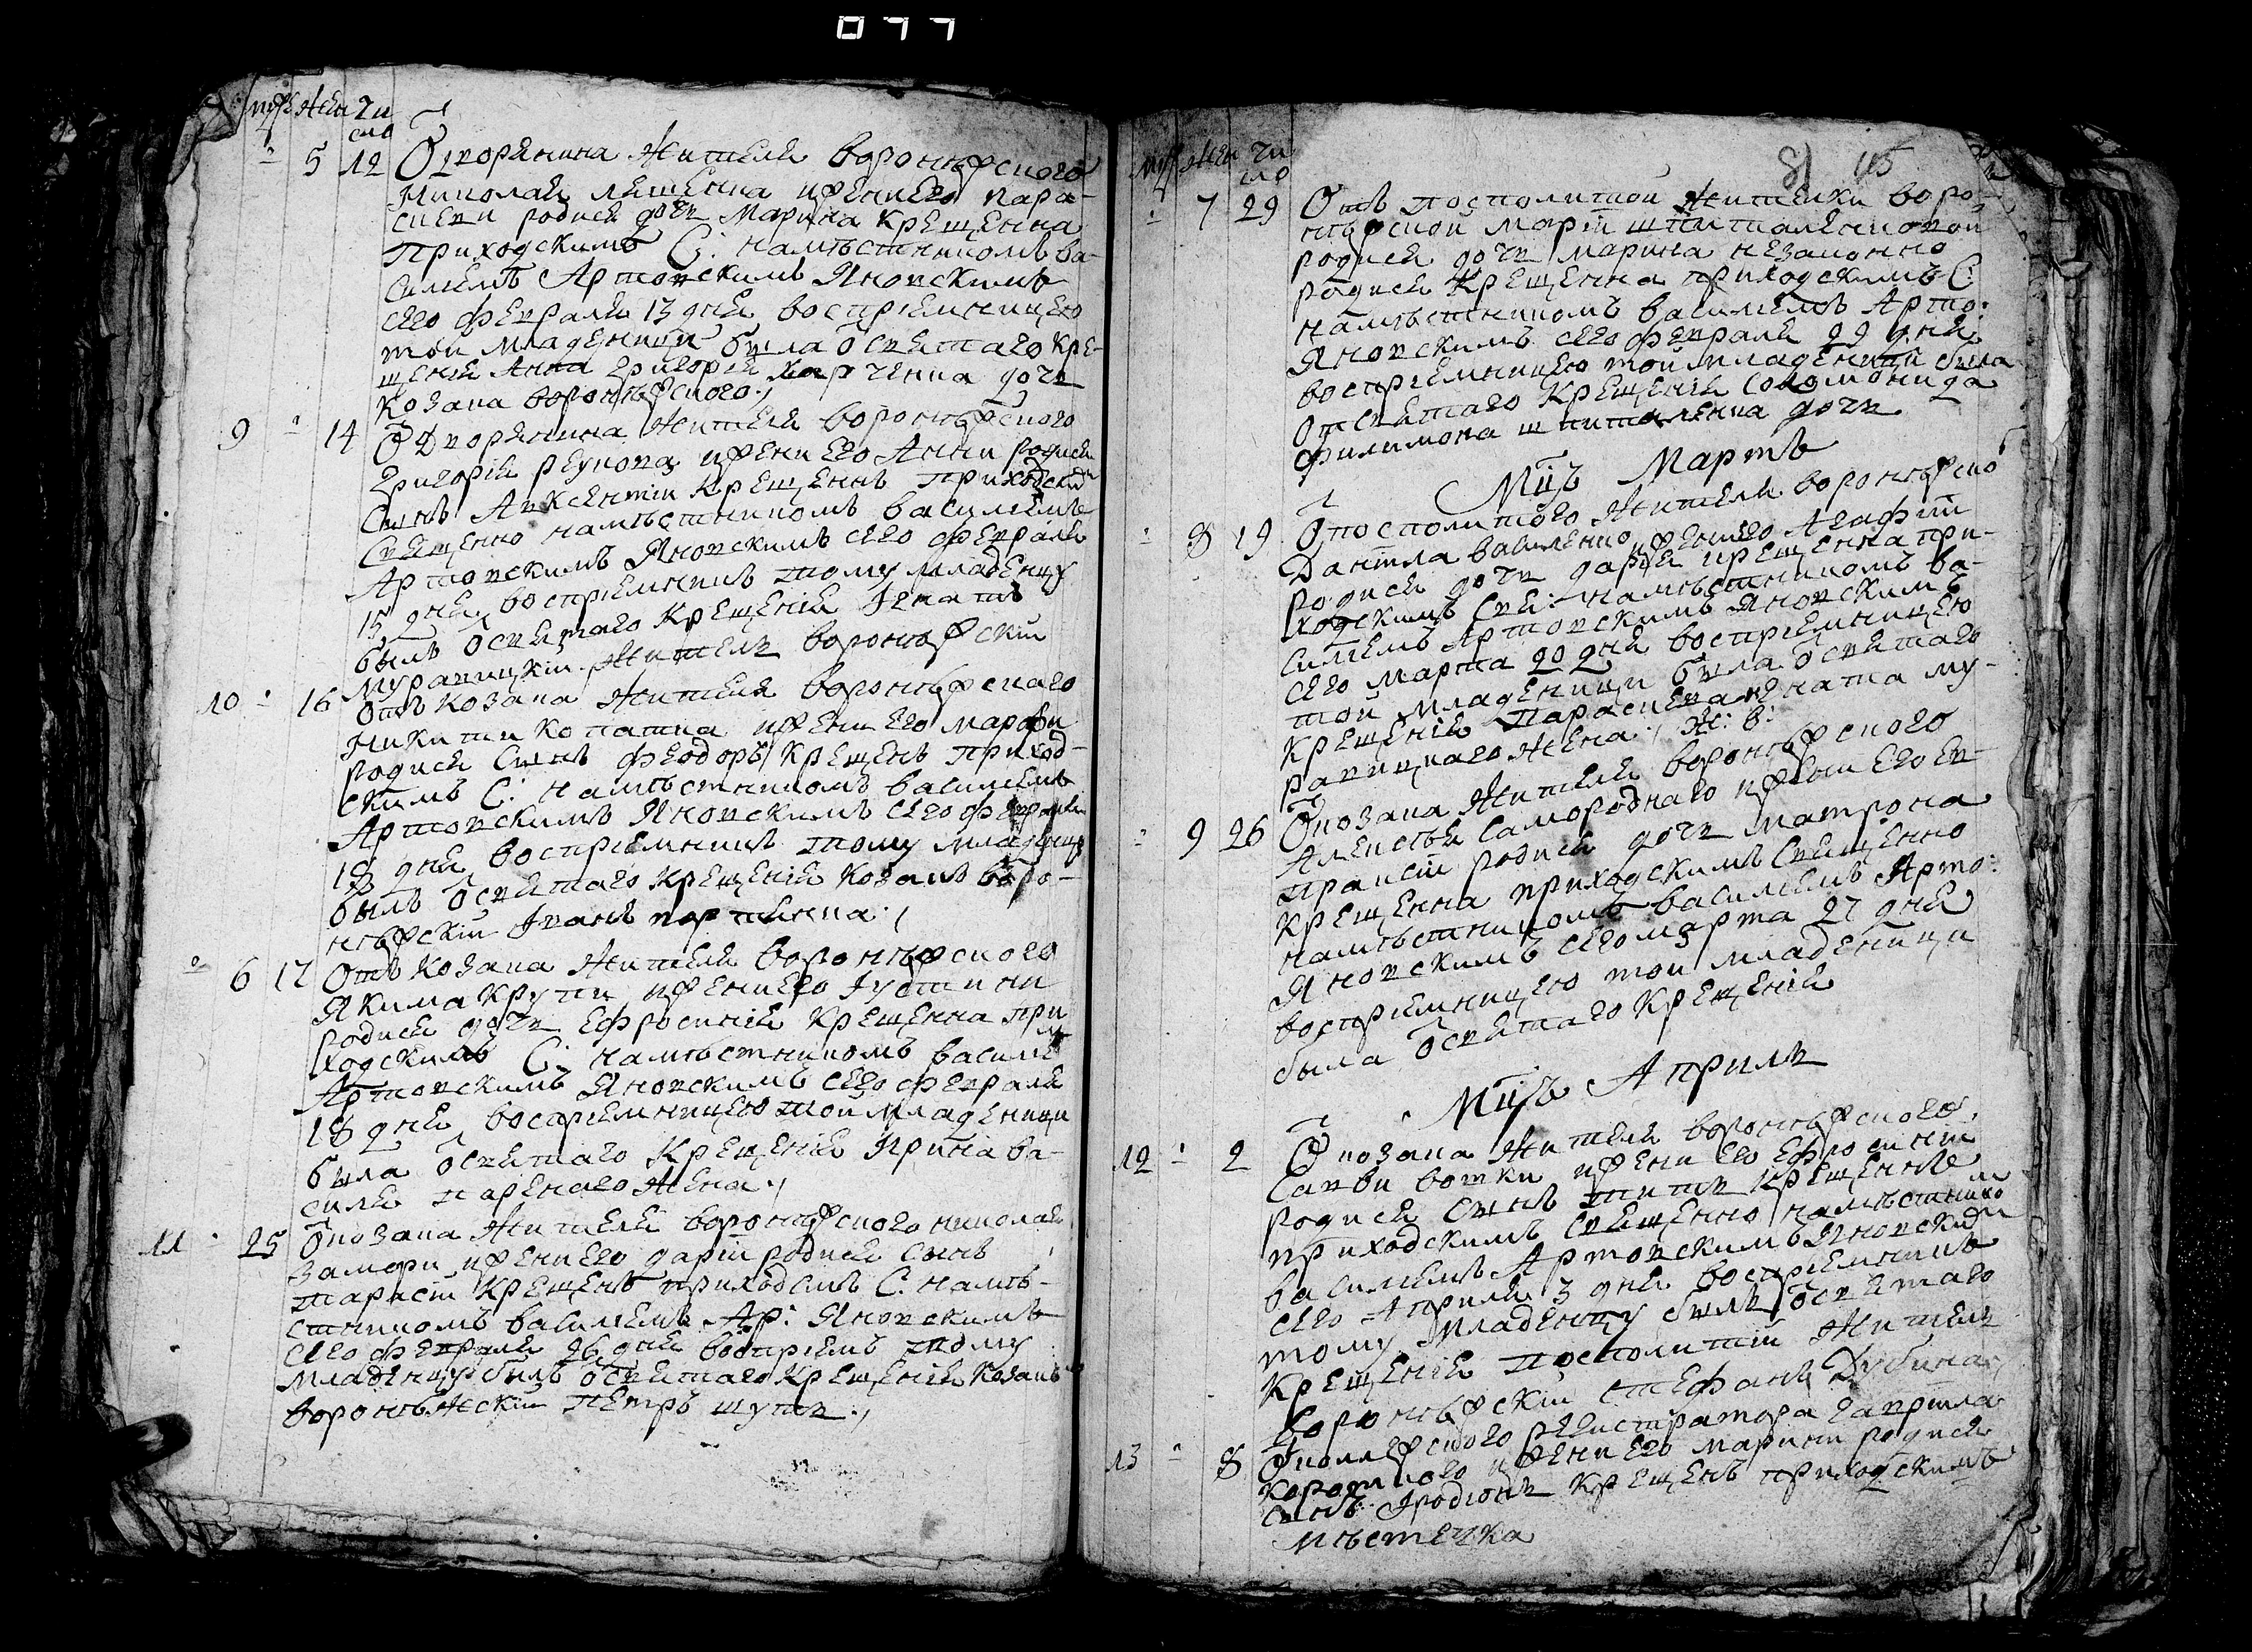 077
муж жен чи
сло
5 12 Ѿ дворянина жителя воронѣжского
Николая ляшенка и жени его пара-
скеви родися дочь Марина крещенна
приходскимъ С: намѣстникомъ ва-
силиемъ Артовскимъ Яновскимъ
сего февраля 13 дня восприемницею
той младеници была ѿ святаго кре-
щенія Анна григорія харченка дочь
козака воронѣжского
9 14 Ѿ Дворянина жителя воронѣжского
григорія реутова и жени его Анни родися
Сынъ Авксентій крещенъ приходским
Священно намѣстникомъ василиемъ
Артовскимъ Яновскимъ сего февраля
15 дня восприемникъ тому младенцу
былъ ѿ святаго крещенія Игнатъ
муравицкій житель воронѣжскій
10 16 Отъ козака жителя воронѣжского
никити копатка и жени его марфи
родися Сынъ феодоръ крещенъ приход-
скимъ С: намѣстникомъ василиемъ
Артовскимъ Яновскимъ сего февраля
18 дня восприемникъ тому младенцу
былъ ѿ святаго крещенія козакъ воро-
нѣжскій Iванъ
6 17 Отъ козака жителя воронѣжского
Якима крупи и жени его Iустини
родися дочь Ефросинія крещенна при
ходскимъ С: намѣстникомъ василием
Артовскимъ Яновскимъ сего февраля
18 дня восприемницею той младеници
была ѿ святаго крещенія Ирина ва-
силя паренаго жена
11 25 Ѿ козака жителя воронѣжского николая
замори и жени его дарій родися сынъ
тарасій крещенъ приходскимъ С. намѣ-
стникомъ василиемъ Ар: Яновскимъ
сего февраля 26 дня восприемъ тому
младенцу былъ ѿ святаго крещенія козакъ
воронѣжскій петръ шупик
81 115
муж жен чи
сло
7 29 Отъ посполитой жителки воро-
нѣжской маріи шпиталенковой
родися дочь марина незаконно
родися крещенна приходскимъ С:
намѣстникомъ василиемъ Арто:
Яновскимъ сего февраля 29 дня
восприемницею той младеници была
от святаго крещенія Соломонида
филимона шпиталенка дочь
Мцъ Мартъ
8 19 Ѿ посполитого жителя воронѣжско
Даніила василенко и жени его Агафіи
родися дочь дарія крещенна при-
ходскимъ Свя: намѣстникомъ ва-
силиемъ Артовскимъ Яновскимъ
сего марта 20 дня восприемницею
той младеници была ѿ святаго
крещенія параскева игната му-
равицкаго жена Ж: в:
9 26 Ѿ козака жителя воронѣжского
Алексѣя самороднаго и жени его ев-
праксіи родися дочь матрона
крещенна приходскимъ священно
намѣстникомъ василиемъ Арто:
Яновскимъ сего марта 27 дня
восприемницею той младеници
была ѿ святаго крещенія
Мцъ Априль
12 2 Ѿ козака жителя воронѣжского
савви вотки и жени его Ефросиніи
родися сынъ титъ крещенъ
приходскимъ священно намѣстнико
василиемъ Артовскимъ Яновским
сего Априля 3 дня восприемникъ
тому младенцу былъ ѿ святаго
крещенія посполитій житель
воронѣжскій стефанъ Дубина
13 8 Ѿ колежского регистратора гавриила
короткого и жени его марини родися
сынъ Iродіонъ крещенъ приходскимъ
мѣстечка